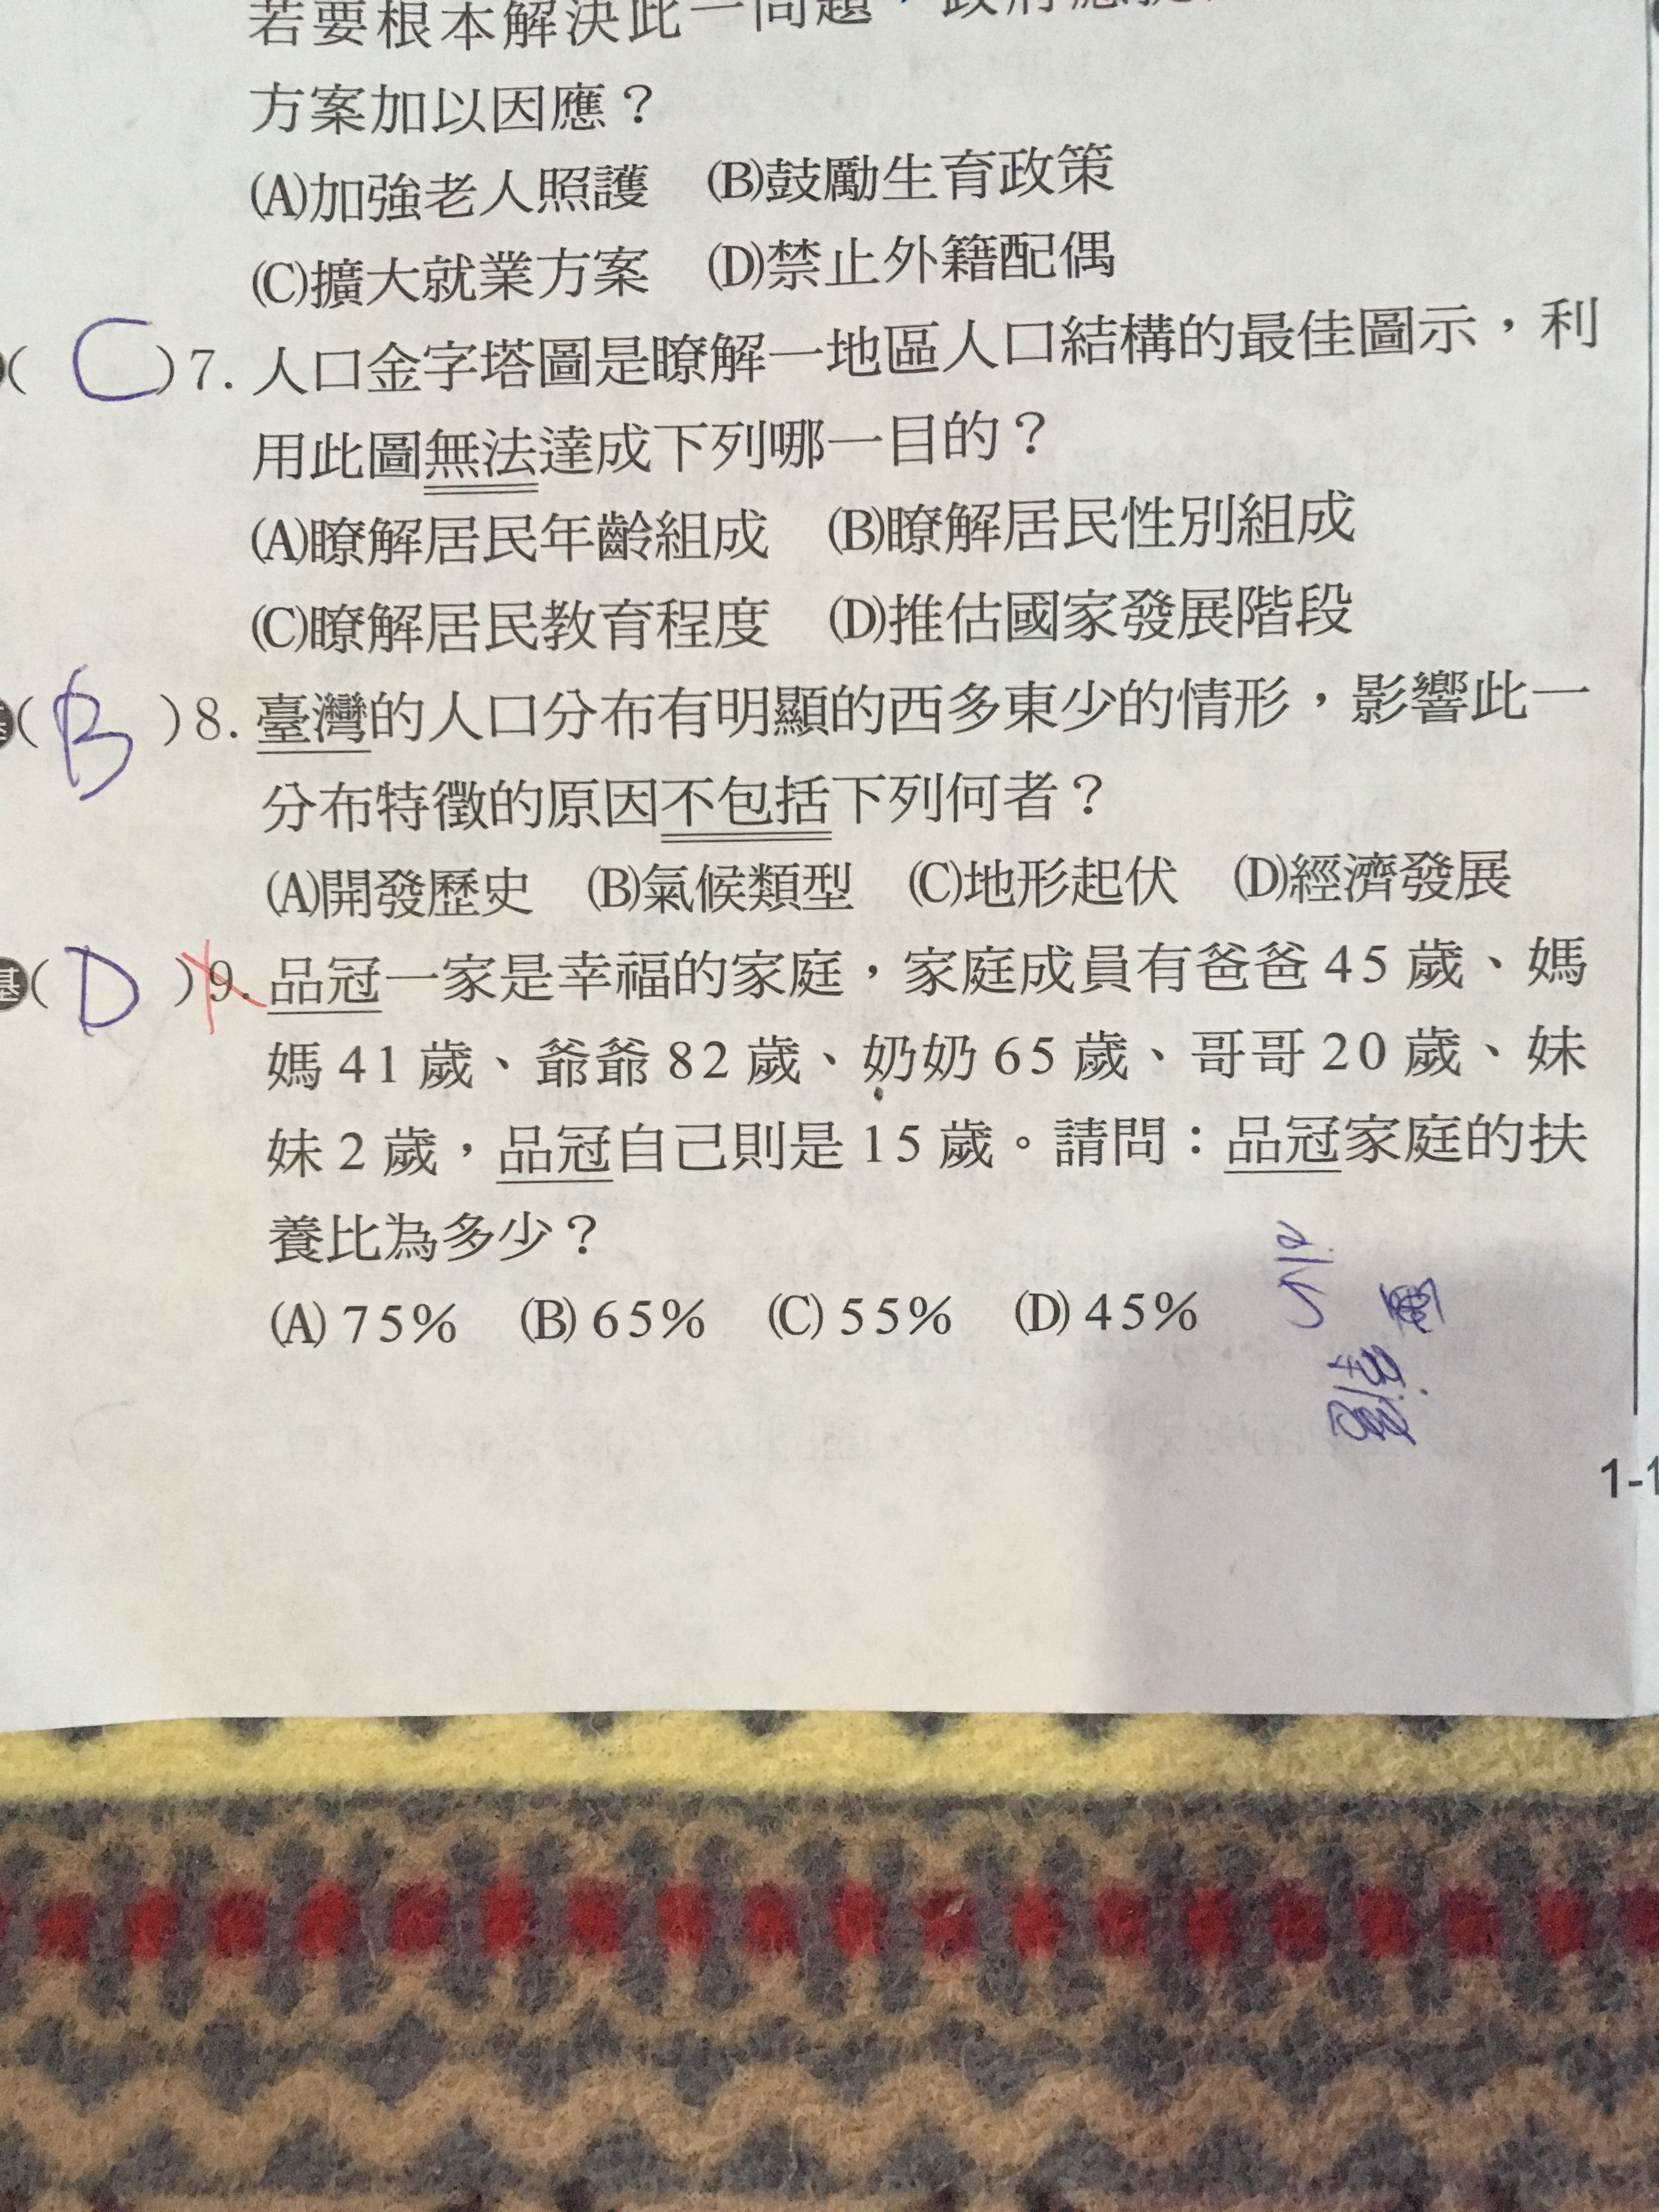 若要根本解決此一問題，政府應
方案加以因應？
(A)加強老人照護 (B)鼓勵生育政策
(C)擴大就業方案 (D)禁止外籍配偶
( C )7. 人口金字塔圖是瞭解一地區人口結構的最佳圖示，利
用此圖無法達成下列哪一目的？
(A)瞭解居民年齡組成 (B)瞭解居民性別組成
(C)瞭解居民教育程度 (D)推估國家發展階段
( B )8. 臺灣的人口分布有明顯的西多東少的情形，影響此一
分布特徵的原因不包括下列何者？
(A)開發歷史 (B)氣候類型 (C)地形起伏 (D)經濟發展
基( D )9. 品冠一家是幸福的家庭，家庭成員有爸爸 45 歲、媽
媽 41 歲、爺爺 82 歲、奶奶 65 歲、哥哥 20 歲、妹
妹 2 歲，品冠自己則是 15 歲。請問：品冠家庭的扶
養比為多少？
(A) 75% (B) 65% (C) 55% (D) 45%
1-1